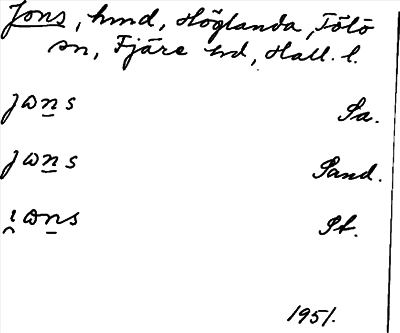 Jons, hmd, Höglanda, Tölö
sn, Fjäre hd, Hall. l.
jωn̲s Sa.
jωn̲s Sand.
i̯ωn̲s St.
1951.